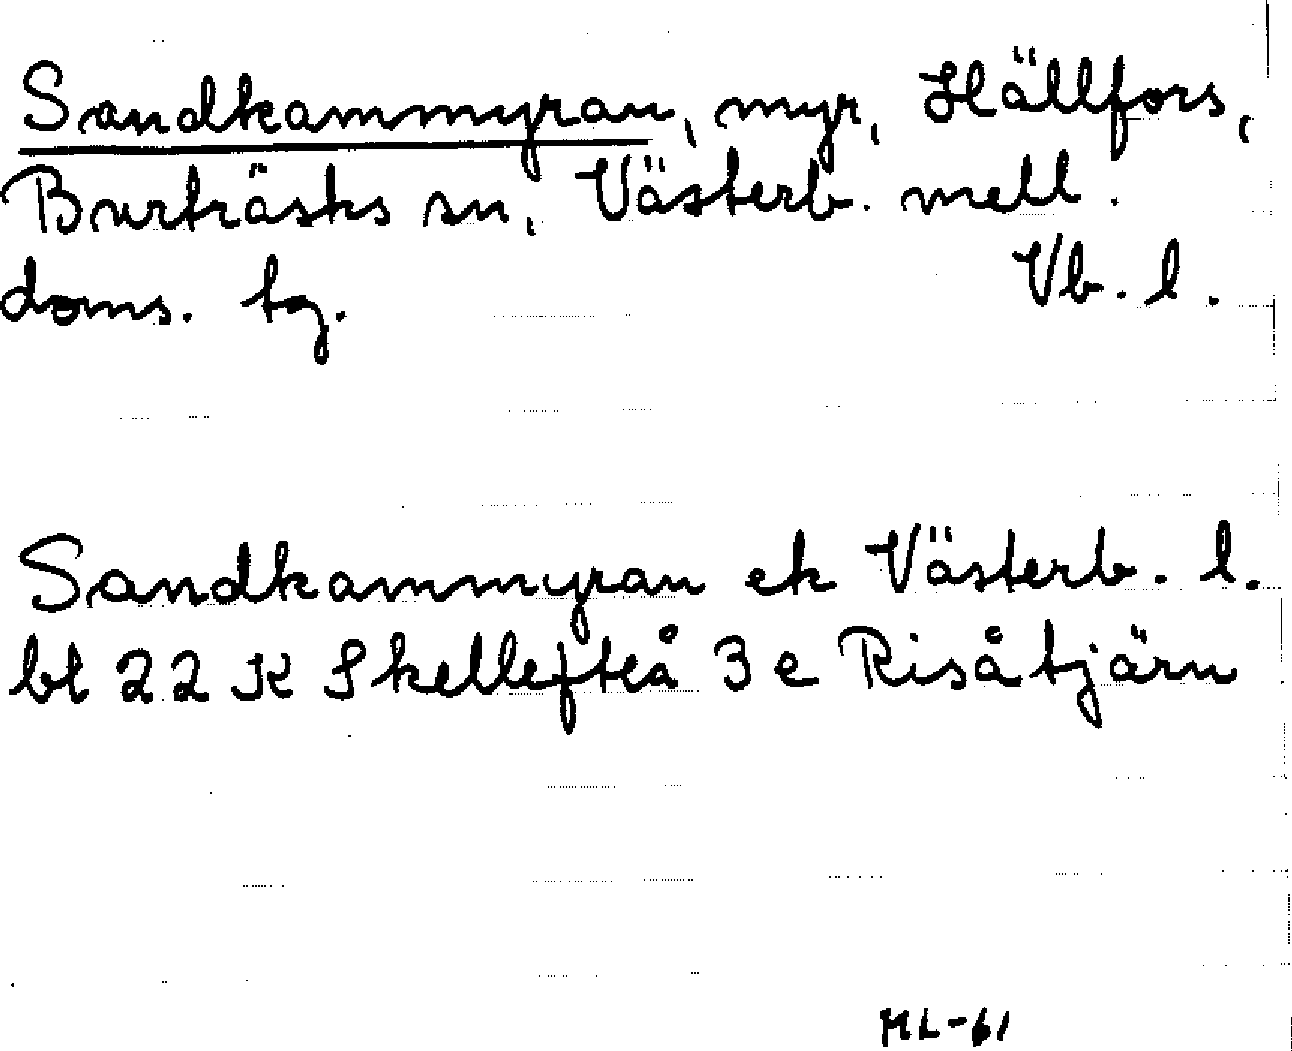 Sandkammyran, myr, Hällfors,
Burträsks sn, Västerb. mell.
doms. tg. Vb. l.
Sandkammyran ek Västerb. l.
bl 22 K Skellefteå 3 e Risåtjärn
ML-61